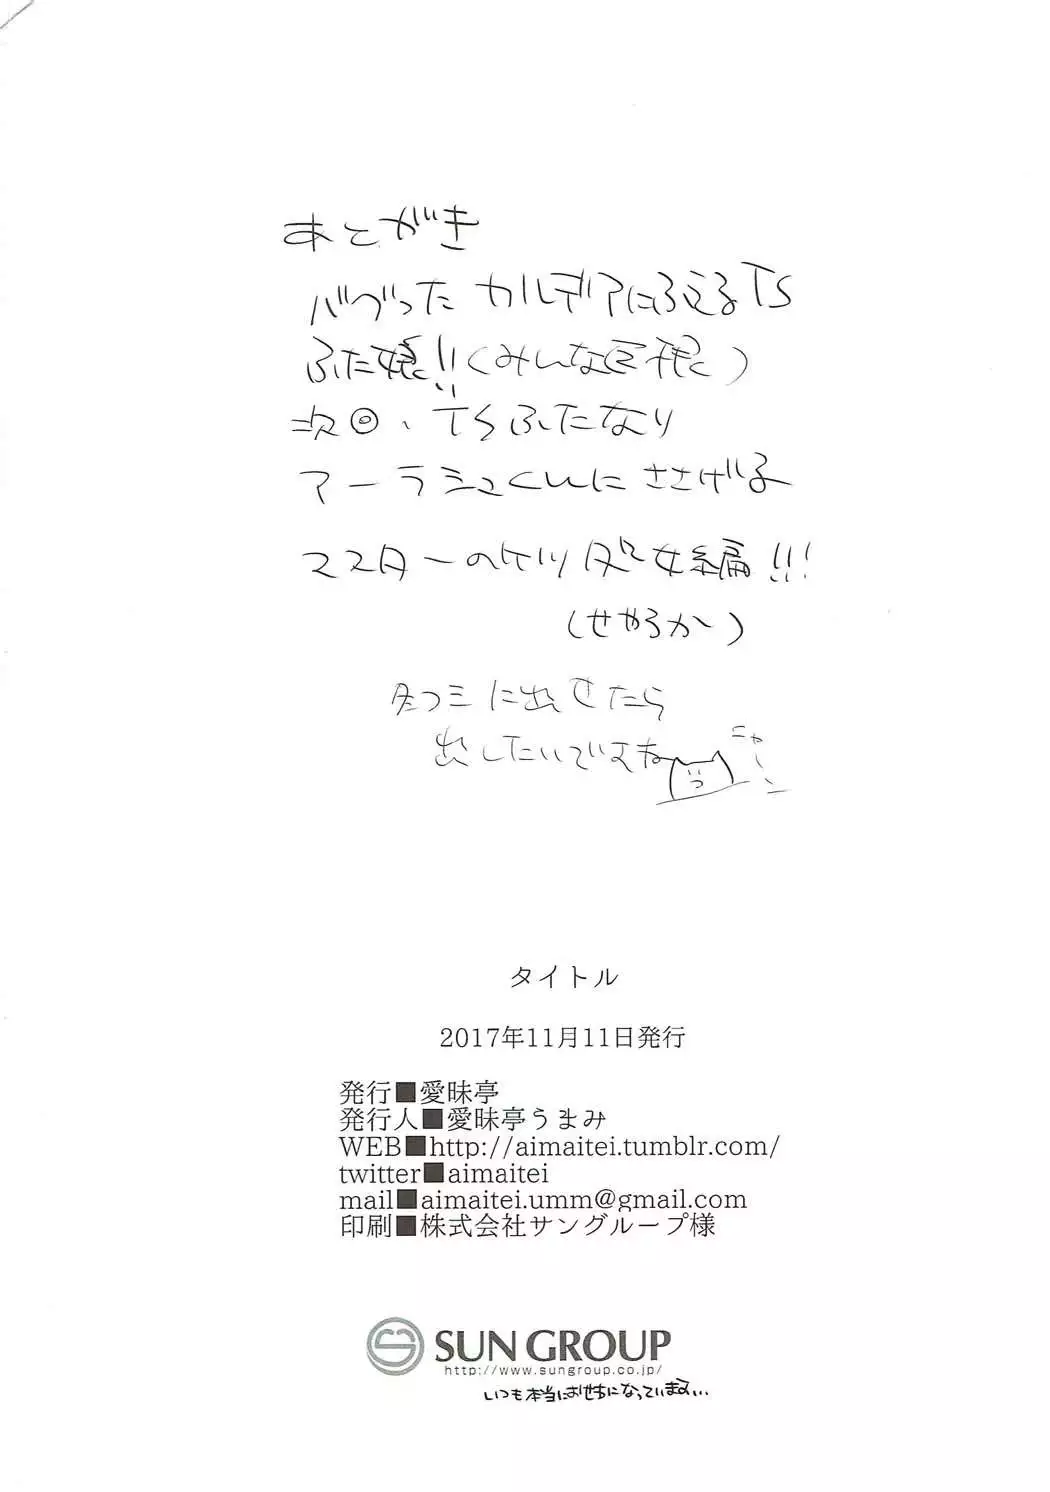 あとがき
バグったカルデアにふえるTS
ふた娘!!(みんな巨根)
次回、TSふたなり
アーラシュくんにささげる
マスターのケツ処女編!!!
(せやろか)
冬コミに出せたら
出したいですね
ニャーン
タイトル
2017年11月11日発行
発行■愛昧亭
発行人■愛昧亭うまみ
WEB■http://aimaitei.tumblr.com/
twitter■aimaitei
mail■aimaitei.umm@gmail.com
印刷■株式会社サングループ様
SUN GROUP
http://www.sungroup.co.jp/
いつも本当におせちになっています...